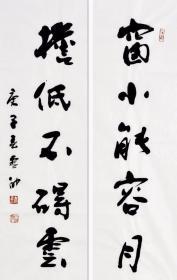 窗小能容月
檐低不碍雲
庚子